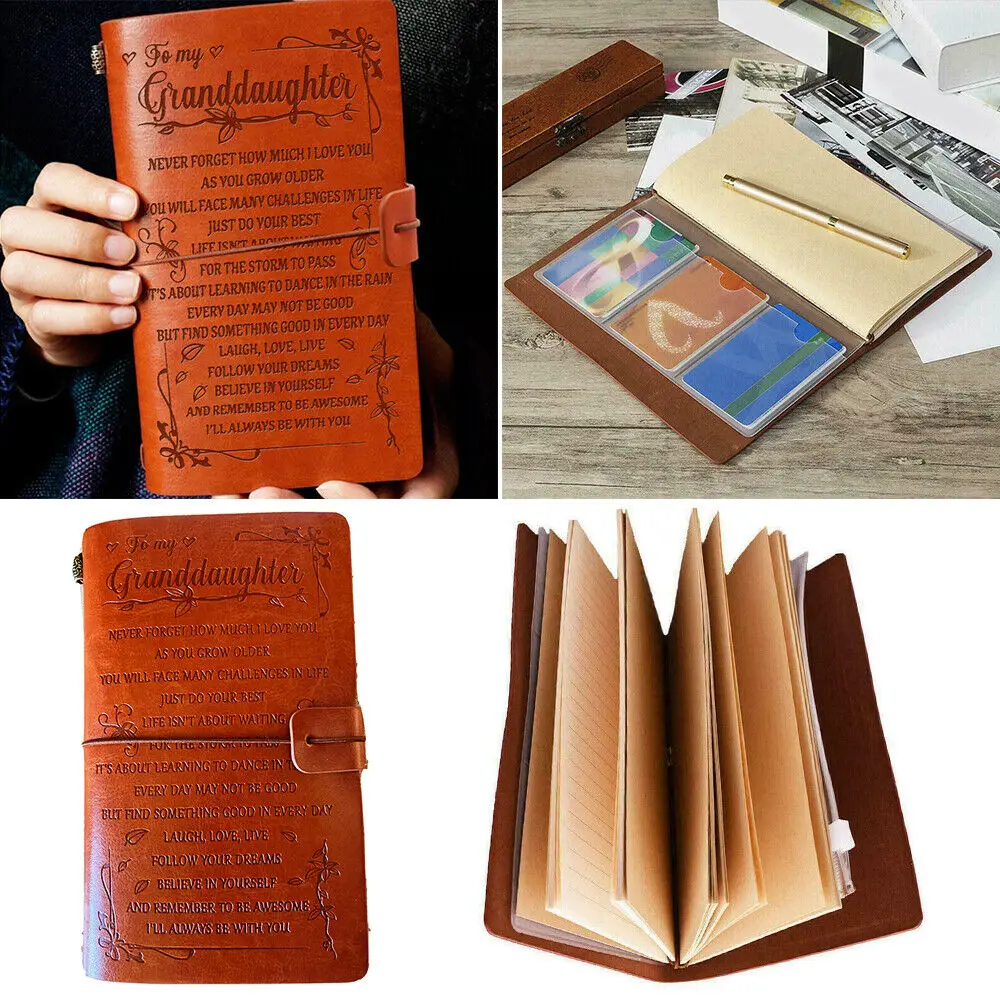 To my
Granddaughter
NEVER FORGET HOW MUCH I LOVE YOU
AS YOU GROW OLDER
YOU WILL FACE MANY CHALLENGES IN LIFE
JUST DO YOUR BEST
LIFE ISN'T ABOUT WAITING
FOR THE STORM TO PASS
IT'S ABOUT LEARNING TO DANCE IN THE RAIN
EVERY DAY MAY NOT BE GOOD
BUT FIND SOMETHING GOOD IN EVERY DAY
LAUGH, LOVE, LIVE
FOLLOW YOUR DREAMS
BELIEVE IN YOURSELF
AND REMEMBER TO BE AWESOME
I'LL ALWAYS BE WITH YOU
To my
Granddaughter
NEVER FORGET HOW MUCH I LOVE YOU
AS YOU GROW OLDER
YOU WILL FACE MANY CHALLENGES IN LIFE
JUST DO YOUR BEST
LIFE ISN'T ABOUT WAITING
FOR THE STORM TO PASS
IT'S ABOUT LEARNING TO DANCE IN T
EVERY DAY MAY NOT BE GOOD
BUT FIND SOMETHING GOOD IN EVERY DAY
LAUGH, LOVE, LIVE
FOLLOW YOUR DREAMS
BELIEVE IN YOURSELF
AND REMEMBER TO BE AWESOME
I'LL ALWAYS BE WITH YOU